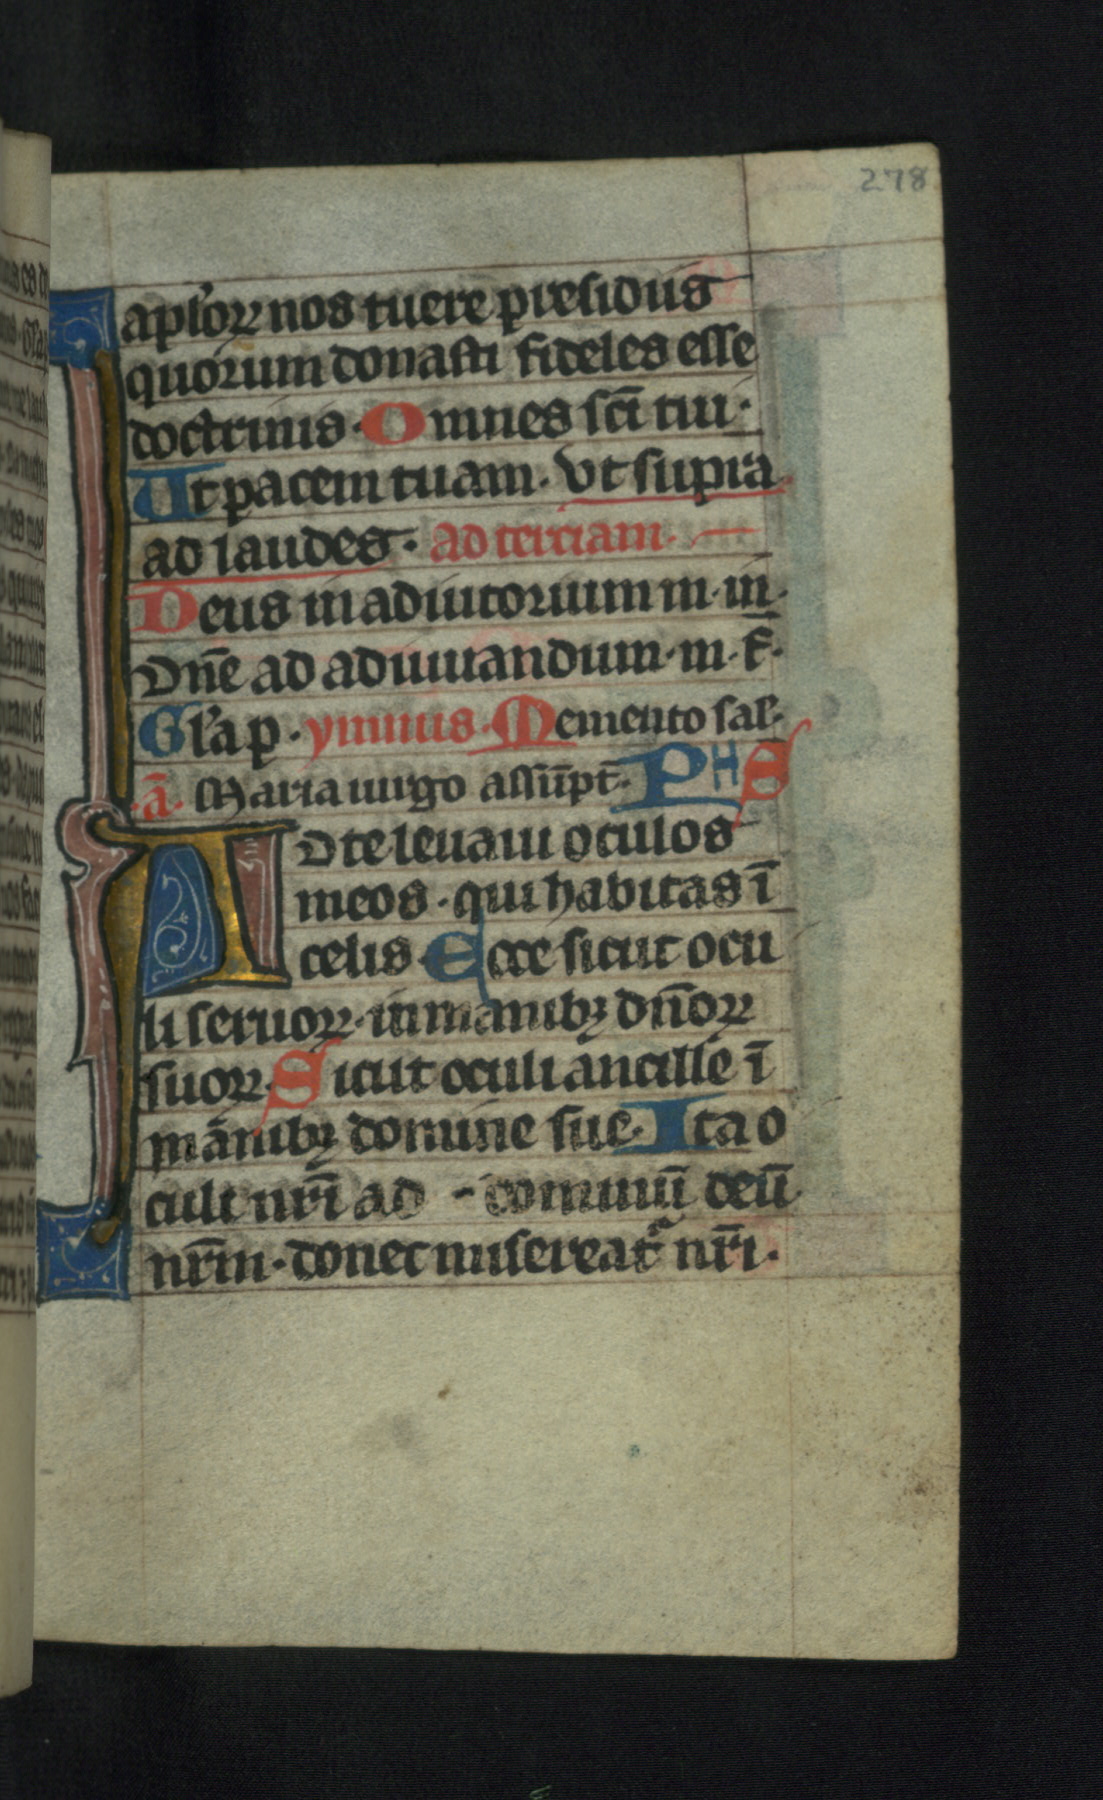 278
apl'oꝝ nos tuere presidiis
quorum donasti fideles esse
doctrinis · Omnes sc̄i tui ·
Ut pacem tuam · Vt supra
ad laudes · ad terciam
Deus in adiutorium m · in ·
Dn̄e ad adiuuandum · m · f̄ ·
Gl'a p · ymnus · Memento sal ·
· ā · Maria uirgo assūpt̄ · PHS
AD te leuaui oculos
meos · qui habitas ī
celis · Ecce sicut ocu
li seruoꝝ · in manibꝫ dn̄oꝝ
suoꝝ · Sicut oculi ancille ī
manibꝫ domine sue · Ita o
culi nr̄i ad - dominū deū
nr̄m · donec misereat' nr̄i ·